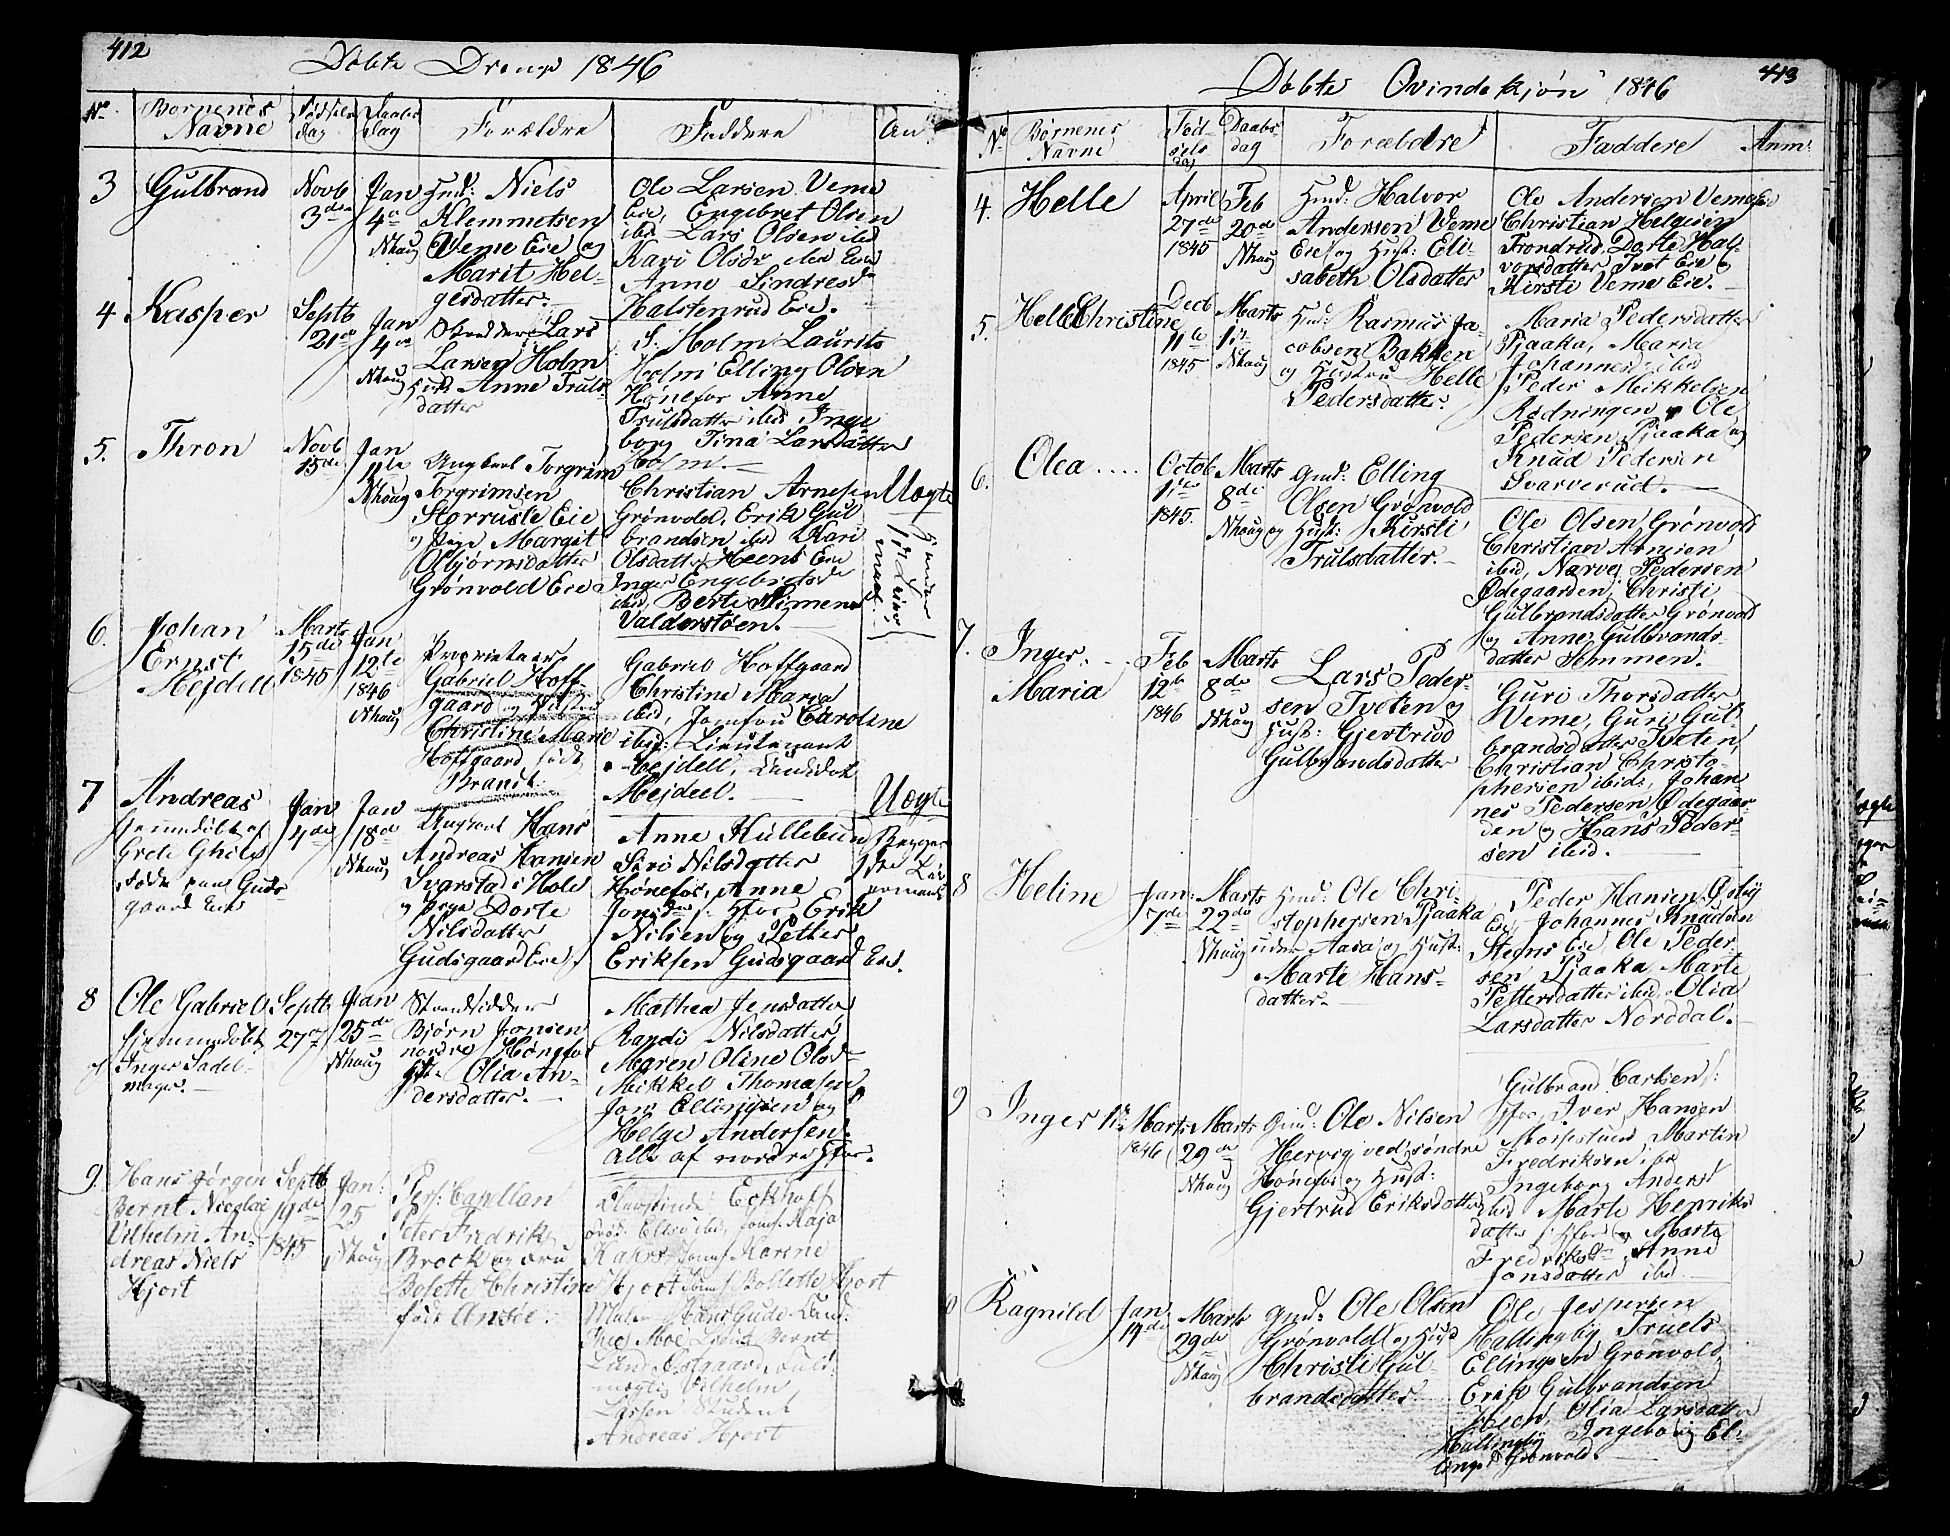 412
Döbte Drenge 1846
No
Børnenes Navne
Fødsels dag
Daabs dag
Forældre
Faddere
An
3
Gulbrand
Novb 3de
Jan 4de Nhaug
Gmd: Niels
Klemmetsen
Veme Eie og
Marit Hel-
gesdatter.
Ole Larsen Veme
Eie, Engebret Olsen
ibid Lars Olsen ibid
Kari Olsdr ibid Eie
Anne Sindresd
Halstenrud Eie.
4
Kasper
Septb 21de
Jan 4de Nhaug
Lars
Larsen Holm
Hust Anne Truls
datter
S. Holm Laurits
Holm Elling Olsen
Hønefos Anne
Trulsdatter ibid Inge
borg Tina Larsdatter
Holm.
5.
Thron
Novb 15de
Jan 11te Nhaug
Ungkarl Torgrim
Torgrimsen
Storrusle Eie
og Pige Margit
Asbjørnsdatter
Grønvold Eie
Christian Arnesen
Grønvold, Erik Gul
brandsen ibid Kari
Olsdatter Heens Eie
Inger Engebretsd
ibid, Berte Simens
Valderstøen.
Uægte
6.
Johan
Ernst
Mejdell
Marts 15de 1845
Jan 12te 1846 Nhaug
Proprietair
Gabriel Hoff
gaard og Hustru
Christine Marie
Hoffgaard født
Brandt.
Gabriel Hoffgaard
Christine Maria
ibid, Jomfru Caroline
ibid: Lieutenant
Mejdell, Landidat
Mejdell.
7
Andreas
hjemmedöbt af
Grete Ghils
født paa Guds
gaard Eie
Jan 4de
Jan 18de Nhaug
Ungkarl Hans
Andreas Hansen
Svarstad i Hole
og Pige Dorte
Nilsdatter
Gudsgaard Eie.
Anne Kullebun
Siri Nilsdatter
Hønefos, Anne
Jonsdr s. Hfos Erik
Nilsen og Petter
Eriksen Gudsgaard Eie.
Uægte
Begges
8
Ole Gabriel
hjemmedöbt
af Inger Sadel-
mager.
Septb 27de
Jan 25de Nhaug
Strandsidder
Bjørn Jonsen
nordre Hønefos
Olia An-
dersdatter.
Mathea Jensdatter
Randi Nilsdatter
Maren Oline Olsd
Mikkel Thomasen
Jon Ellingsen og
Helge Andersen
Alle af nordre Hfos.
9.
Hans Jørgen
Bernt Nicolai
Vilhelm An-
dreas Niels
Hjort
Septb 19de 1845
Jan: 25 Nhaug
Pers: Capellan
Peter Fredrik
Brock og Fru
Bolette Christine
født Ansie.
Eckhoff
Kaja
Kahrs Jomf Karine
Hjort Bollette Hjort
Hans Gude
Moe Bernt
Lund
mægtig Vilhelm
Larsen Student
Andreas Hjort
413
Döbte Qvindekjön 1846
No
Børnenes Navne
Fød- sels dag
Daabs- dag
Forældre
Faddere
Anm:
4.
Helle
April 27de 1845
Feb 20de Nhaug
Gmd: Halvor
Andersen Veme
Eie og Hust: Eli-
sabeth Olsdatter
Ole Andersen Veme Eie
Christian Helgesen
Frondrud Dorte Hal-
vorsdatter Tvet Eie og
Kirsti Veme Eie.
5.
Helle Christine
Decb 11te 1845
Marts 1ste Nhaug
Gmd: Rasmus Ja-
cobsen Bakken
og Hustru Helle
Pedersdatter.
Maria Pedersdatter
Pjaaka, Maria
Johannesd: ibid
Peder Mikkelsen
Rødningen og Ole
Pedersen Pjaaka og
Knud Pedersen
Svarverud.
6.
Olea
Octob 1ste 1845.
Marts 8de Nhaug
Gmd: Elling
Olsen Grønvold
og Hust: Kirsti
Trulsdatter.
Ole Olsen Grønvold
Christian Arnesen
ibid, Narve Pedersen
Ødegaarden, Christi
Gulbrandsdatter Grønvold
og Anne Gulbrands-
datter Semmen.
7.
Inger
Maria
Feb 12te 1846
Marts 8de Nhaug
Lars Peder-
sen Tveten og
Hust: Gjertrud
Gulbrandsdatter
Guri Thorsdatter
Veme, Guri Gul-
brandsdatter Tveten
Christian Christo-
phersen ibid, Johan-
nes Pedersen Ødegaar-
den og Hans Peder-
sen ibid.
8
Heline
Jan: 7de
Marts 22de Nhaug
Gmd: Ole Chri-
stophersen Pjaaka
under Aasa og Hust:
Marte Hans-
datter.
Peder Hansen Øsby
Eie, Johannes Knudsen
Stegns Eie Ole Peder-
sen Pjaaka Marte
Pettersdatter ibid, Olia
Larsdatter Norddal.
9
Inger
1ste Marts 1846
Marts 29de Nhaug
Gmd: Ole Nilsen
Hervig ved søndre
Hønefos og Hust:
Gjertrud Eriksdatter
Gulbrand Carlsen s:
Hfos, Iver Hansen
Moisestuen Martin
Fredriksen ibid
Ingeborg Andersd
ibid Marte Henriks
datter s: Hfos og Marte
Fredriksdr Anne
Jonsdatter ibid
Ragnild
Jan 19de
Marts 29de Nhaug
Gmd: Ole Olsen
Grønvold og Hust
Christi Gul-
brandsdatter
Ole Jespersen
Hallingby Truels
Ellingsen Grønvold
Erik Gulbrandsen
Heen, Olia Larsdatter
Hallingby Ingeborg El-
lingsd Grønvold.